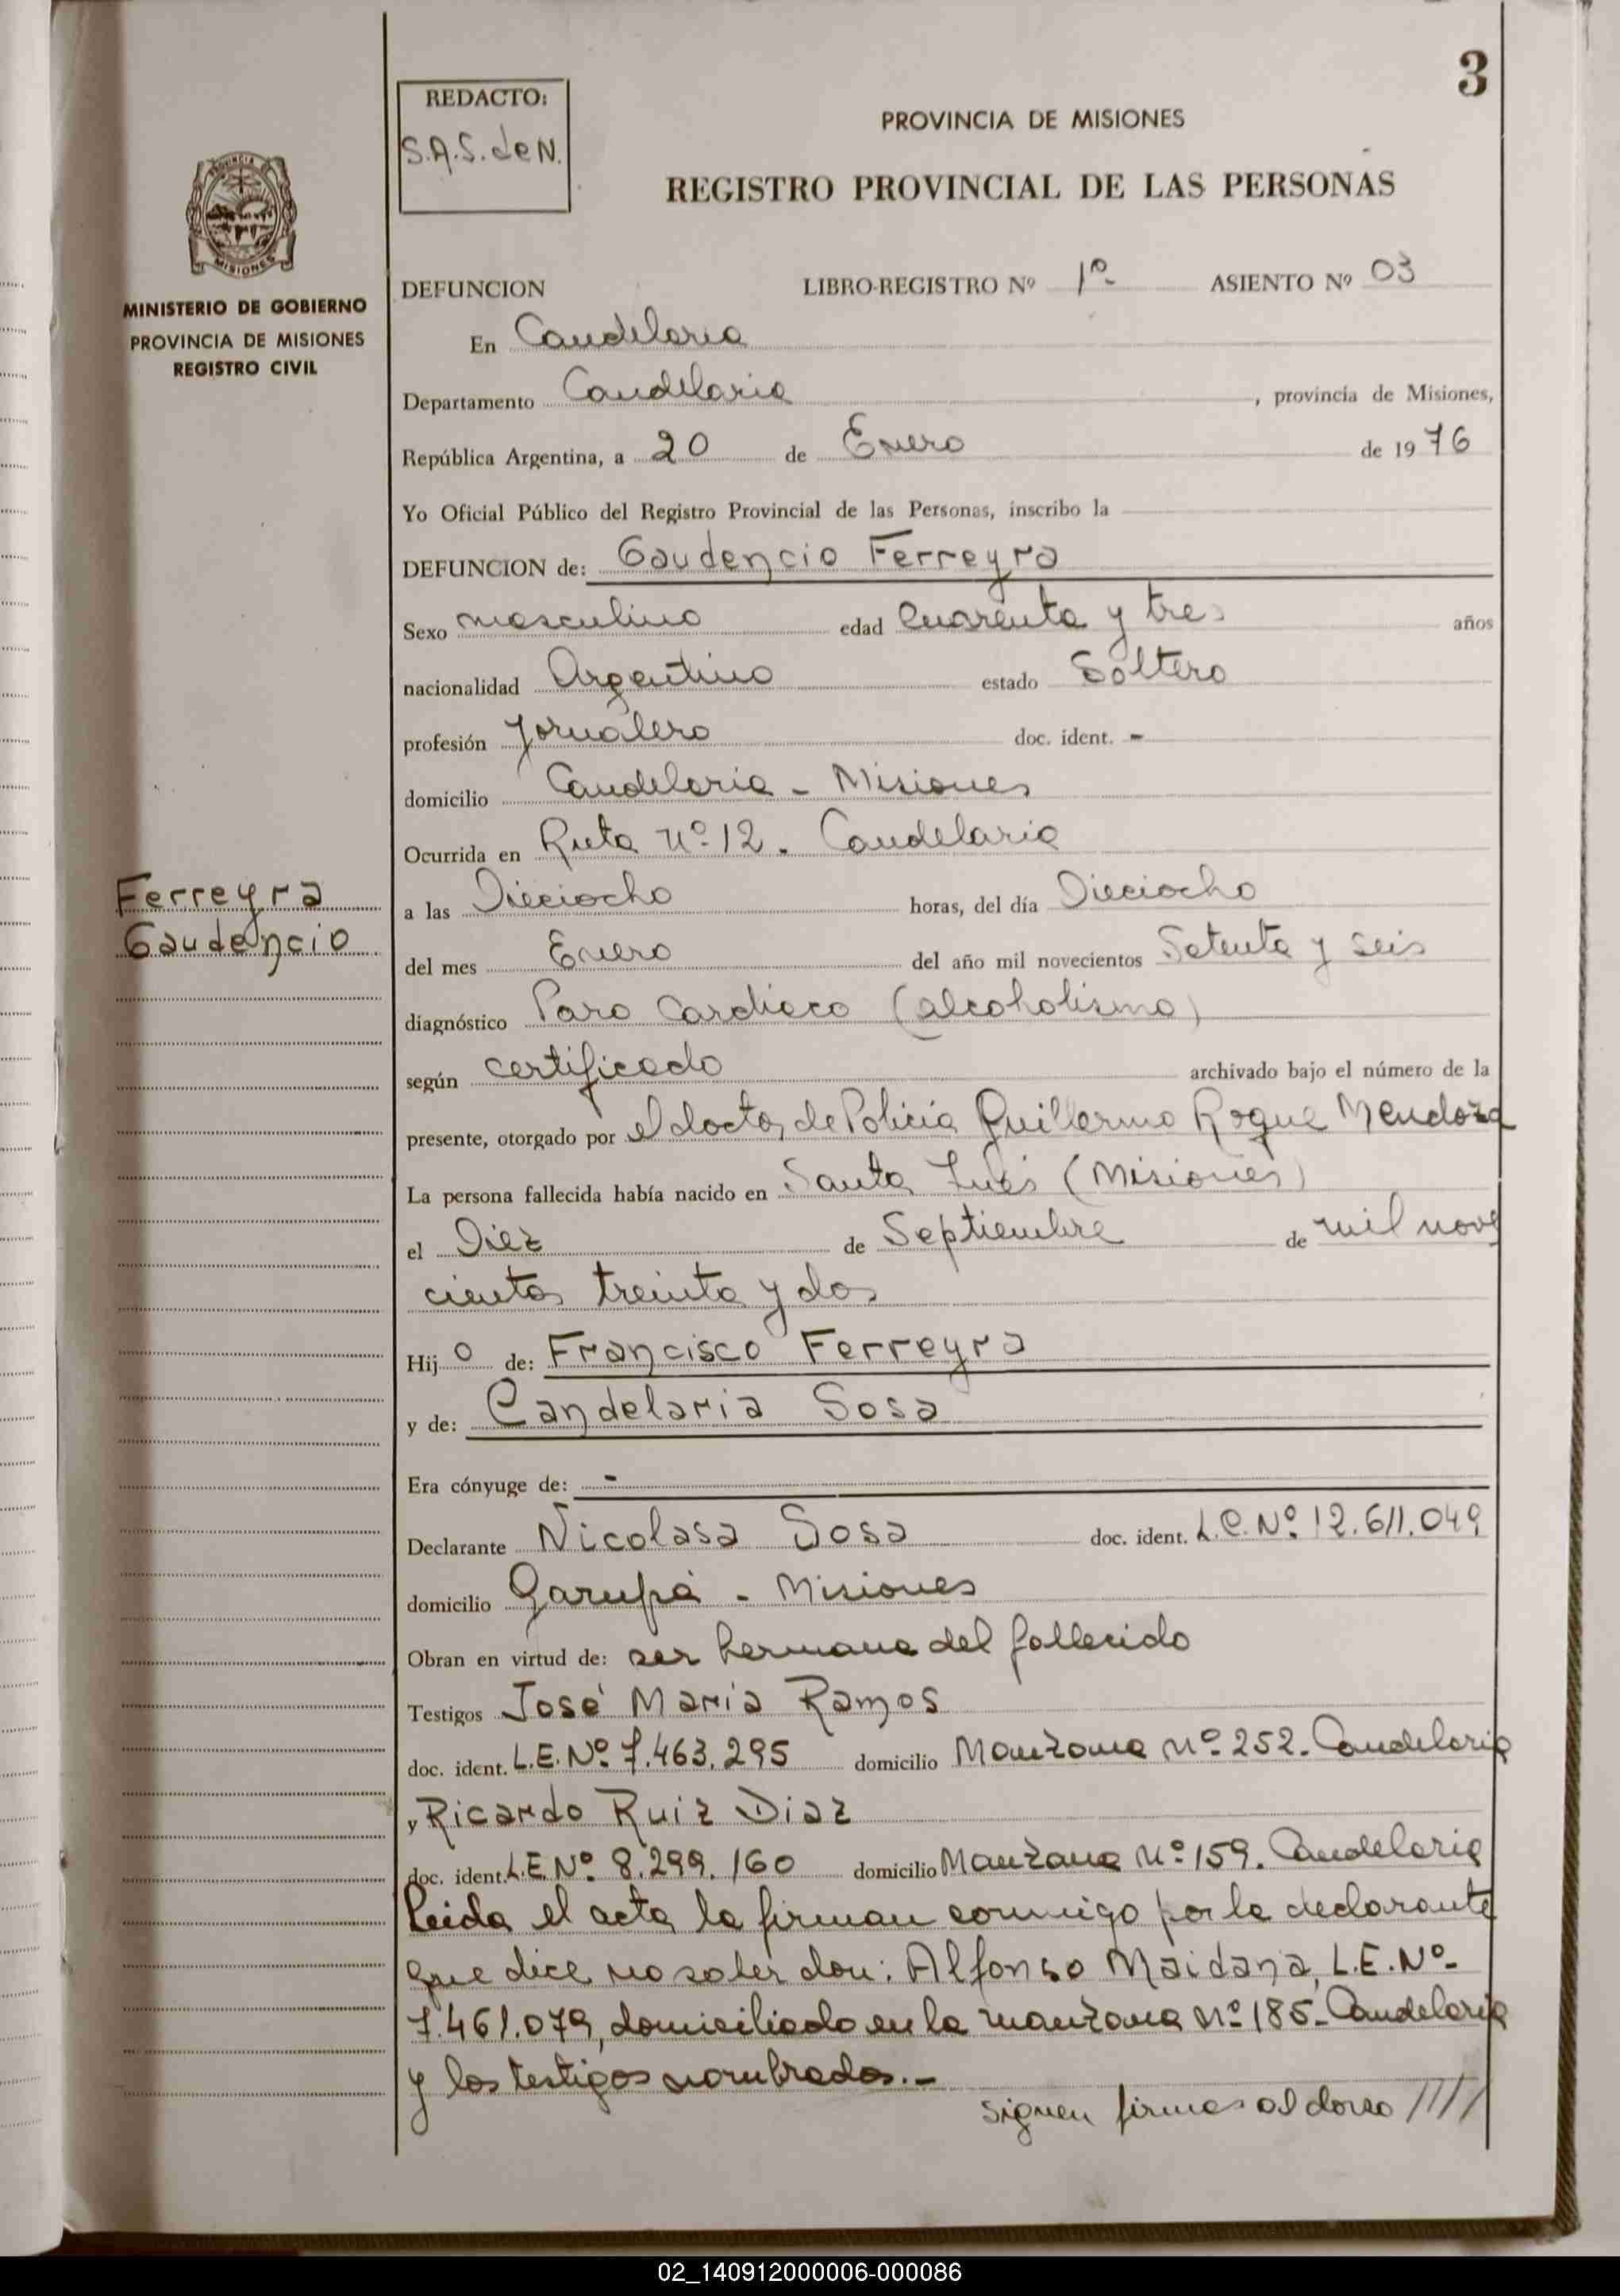 3
REDACTO:
S.A.S. de N.
PROVINCIA DE MISIONES
REGISTRO PROVINCIAL DE LAS PERSONAS
MISIONES
MINISTERIO DE GOBIERNO
PROVINCIA DE MISIONES
REGISTRO CIVIL
DEFUNCION LIBRO-REGISTRO Nº 1º ASIENTO Nº 03
En Candelaria
Departamento Candelaria, provincia de Misiones,
República Argentina, a 20 de Enero de 1976
Yo Oficial Público del Registro Provincial de las Personas, inscribo la
DEFUNCION de: Gaudencio Ferreyra
Sexo masculino edad Cuarenta y tres años
nacionalidad Argentino estado Soltero
profesión Jornalero doc. ident. -
domicilio Candelaria - Misiones
Ocurrida en Ruta Nº 12. Candelaria
Ferreyra
Gaudencio
a las Dieciocho horas, del día Dieciocho
del mes Enero del año mil novecientos Setenta y seis
diagnóstico Paro Cardiaco (alcoholismo)
según certificado archivado bajo el número de la
presente, otorgado por el doctor de Policia Guillermo Roque Mendoza
La persona fallecida había nacido en Santa Inés (Misiones)
el Diez de Septiembre de mil nove
cientos treinta y dos
Hijo de: Francisco Ferreyra
y de: Candelaria Sosa
Era cónyuge de: -
Declarante Nicolasa Sosa doc. ident. L.C. Nº 12.611.049
domicilio Garupá - Misiones
Obran en virtud de: ser hermana del fallecido
Testigos José Maria Ramos
doc. ident. L.E. Nº 7.463.295 domicilio Manzana Nº 252. Candelaria
y Ricardo Ruiz Diaz
doc. ident. L.E Nº 8.299.160 domicilio Manzana Nº 159. Candelaria
Leida el acta, la firman conmigo por la declarante
que dice no saber don: Alfonso Maidana, L.E. Nº
7.461.079, domiciliado en la manzana Nº 185- Candelaria
y los testigos nombrados.-
Siguen firmas al dorso ////
02_140912000006-000086